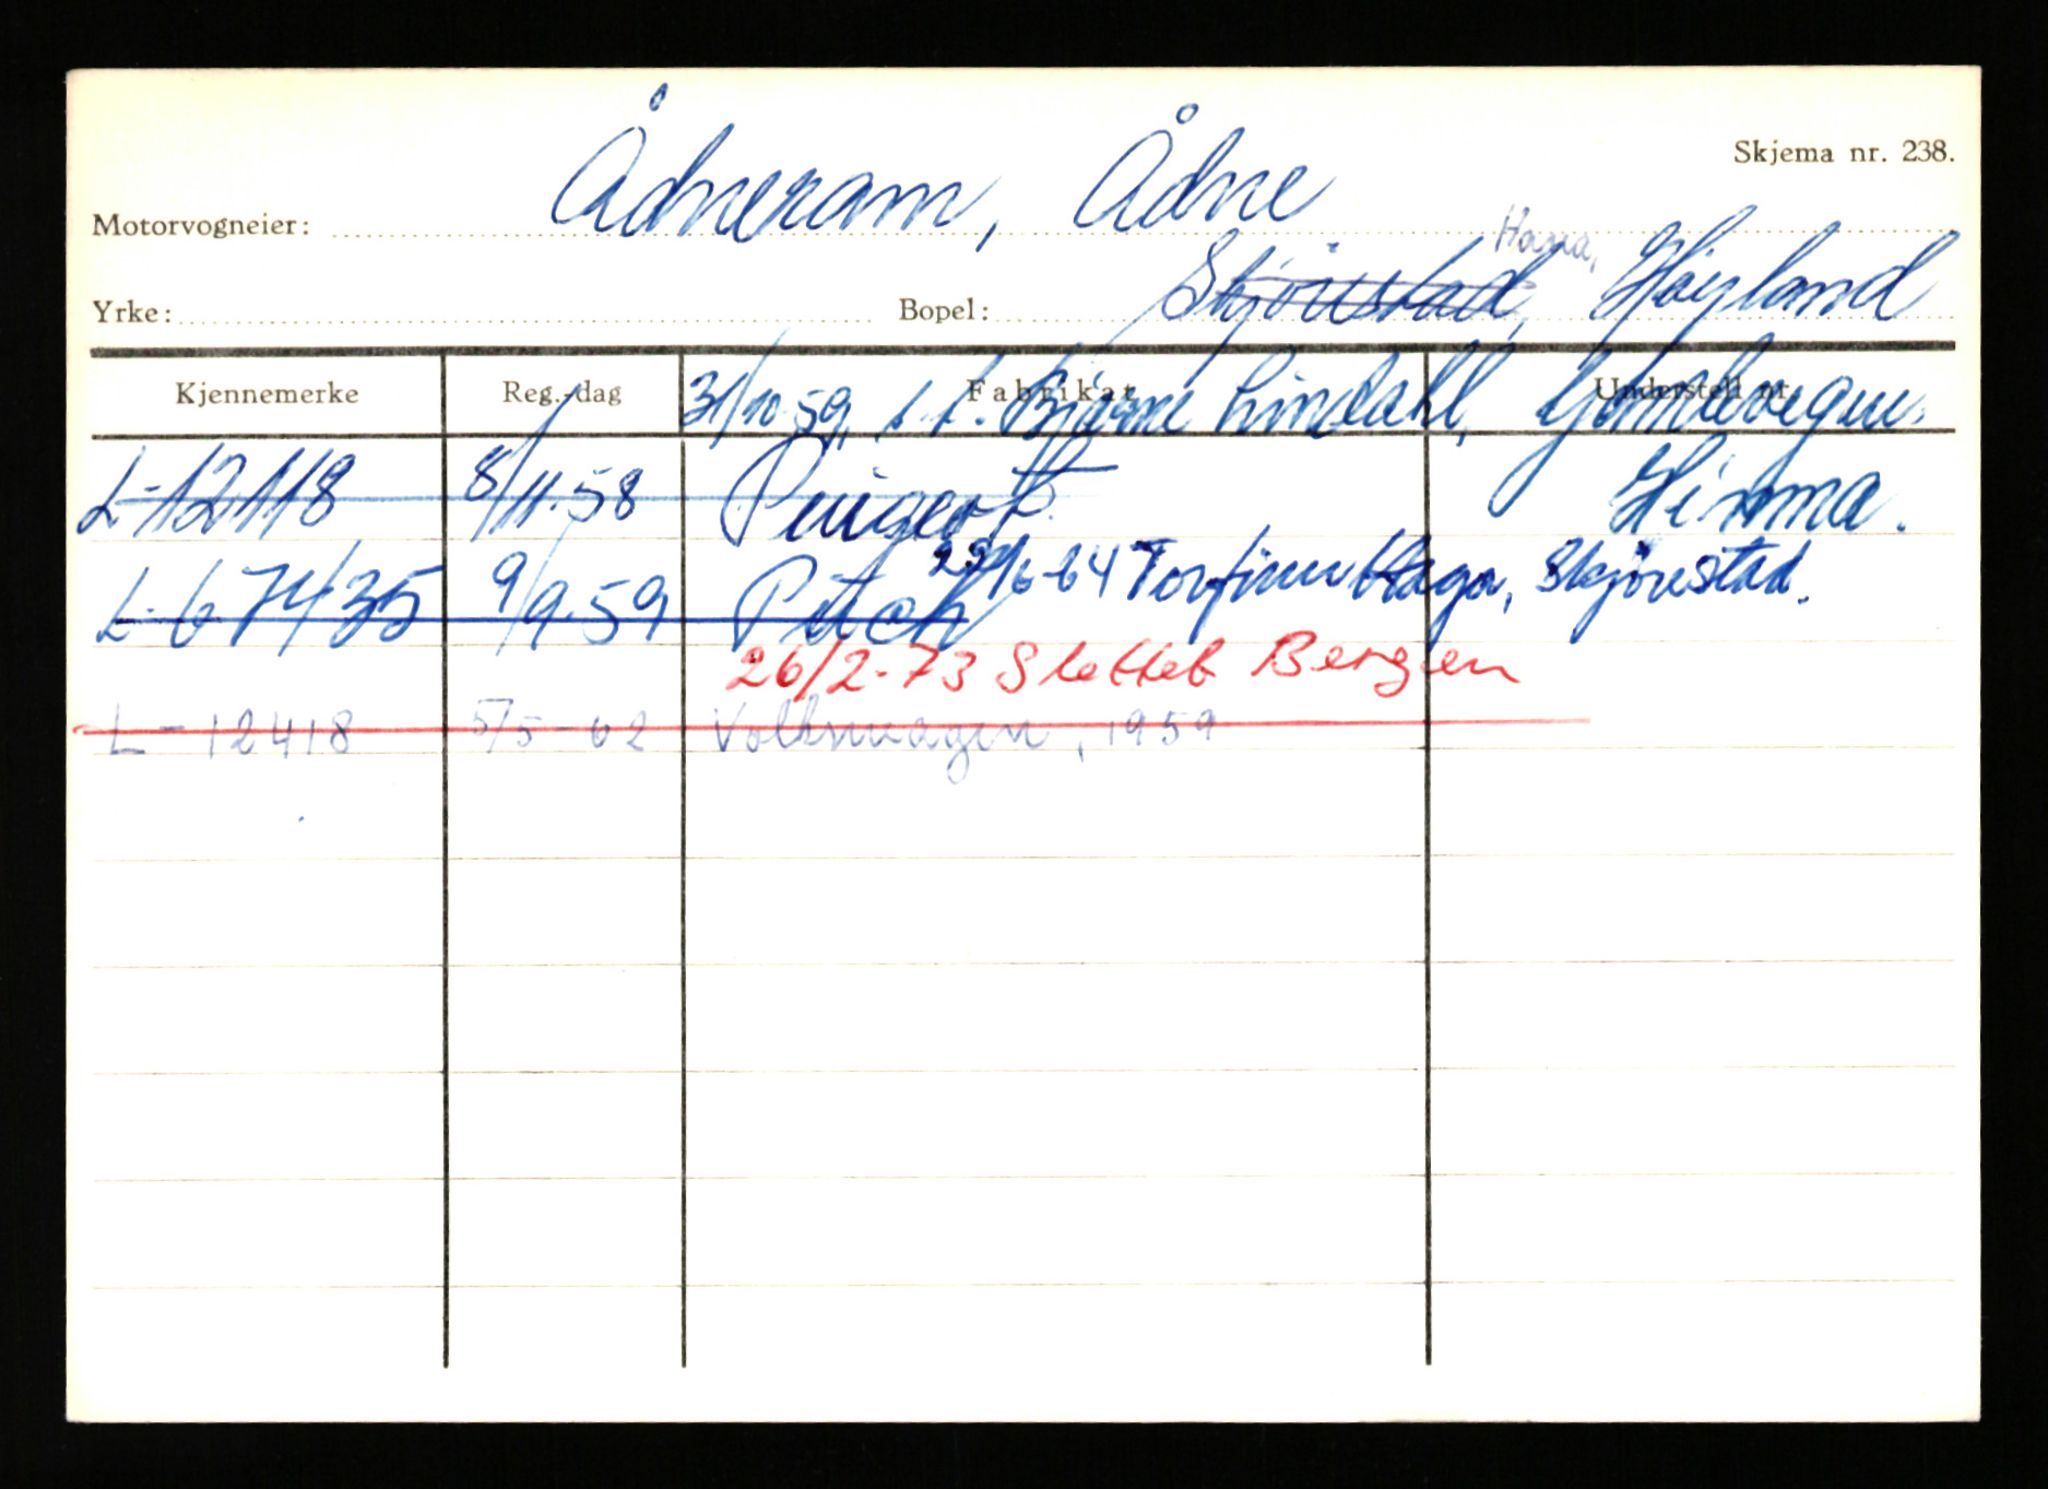 Skjema nr. 238.
Motorvogneier: Ådneram, Ådne
Hana,
Yrke: Bopel: Skjørestad, Høyland
Kjennemerke Reg.-dag Fabrikat Understell nr.
31/10-59, Bjarne Lindahl,
L-12118 8/11-58 Peugeot Hinna.
25/6-64 Torfinn Haga, Skjørestad.
L-67435 9/9-59 Puch
26/2-73 Slettet Bergen
L-12418 5/5-62 Volkswagen, 1959